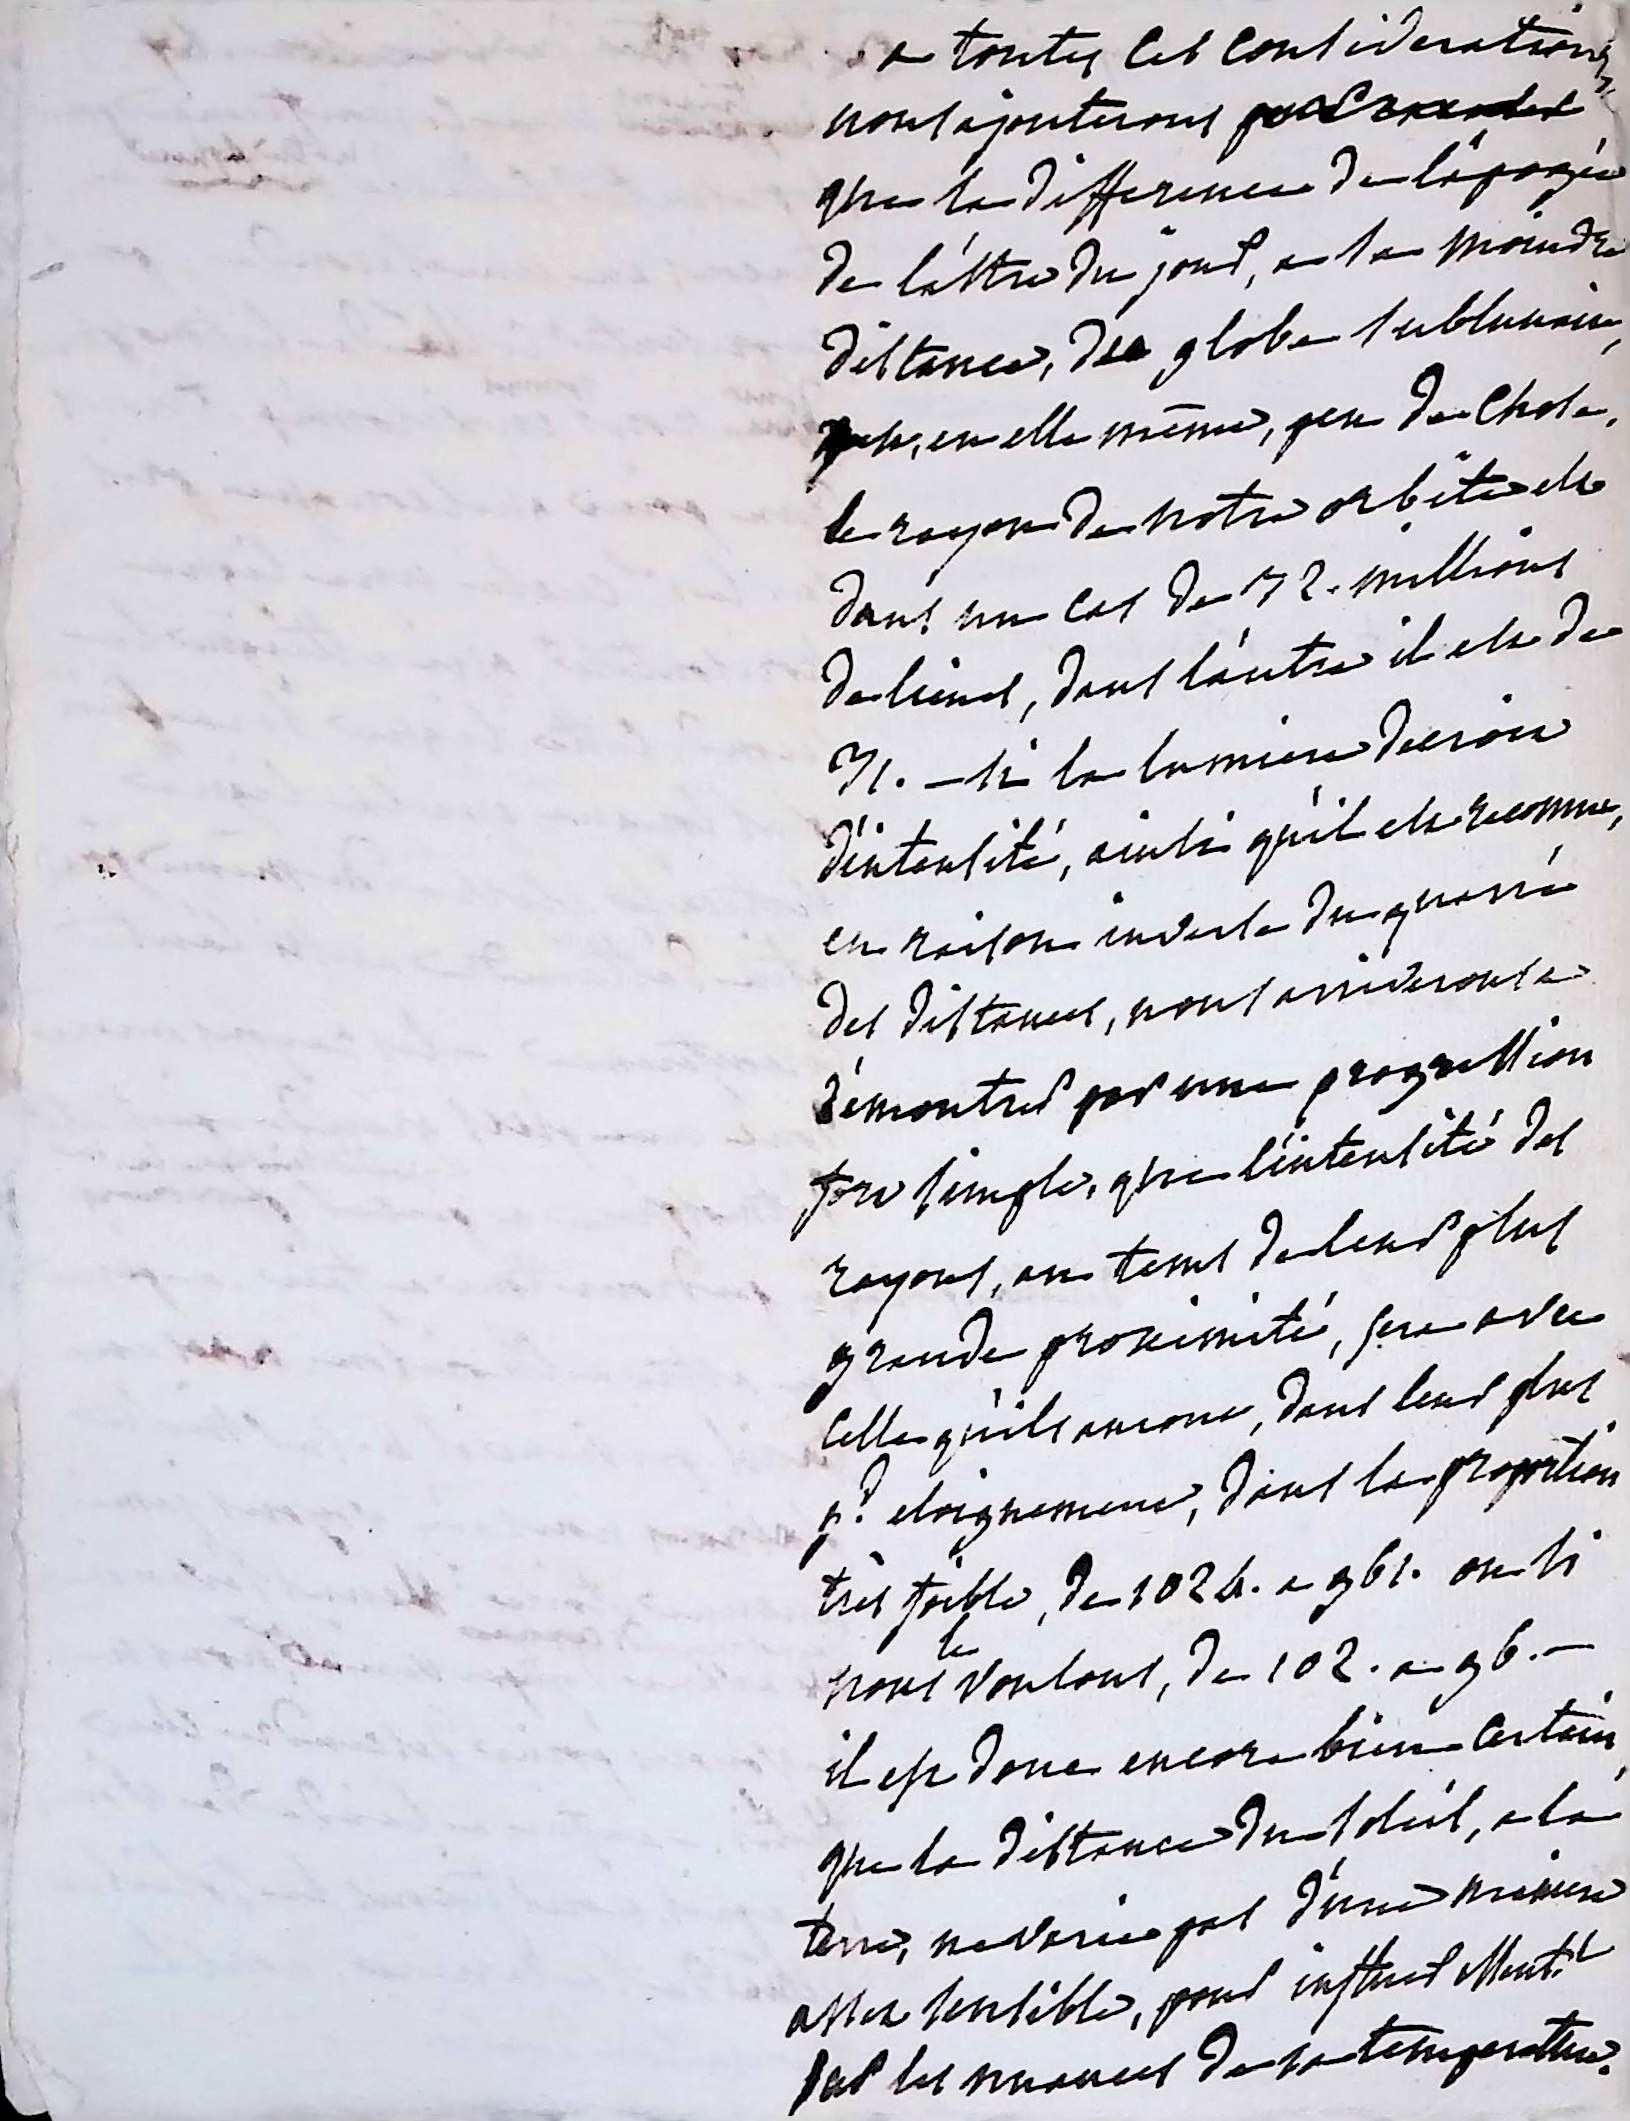 a toutes ces considerations,
nous ajouterons
que la difference de l'apogée
de l'astre du jour, a la moindre
distance, du globe sublunaire,
est, en elle même, peu de chose.
le rayon de notre orbite est
dans un cas de 32. millions
de lieues, dans l'autre il est de
31. — si la lumiere decroit
d'intensité, ainsi qu'il est reconnu,
en raison inverse du quarré
des distances, nous arriverons a
démontrer par une progression
fort simple, que l'intensité des
rayons, au tems de leur plus
grande proximité, sera avec
celle qu'ils auront, dans leur plus
gd. eloignement, dans la proportion
très foible, de 1024. a 961. ou si
nous le voulons, de 102. a 96. —
il est donc encore bien certain,
que la distance du soleil, a la
terre, ne varie pas d'une maniere
assez sensible, pour influer essent.t
sur les nuances de la temperature.